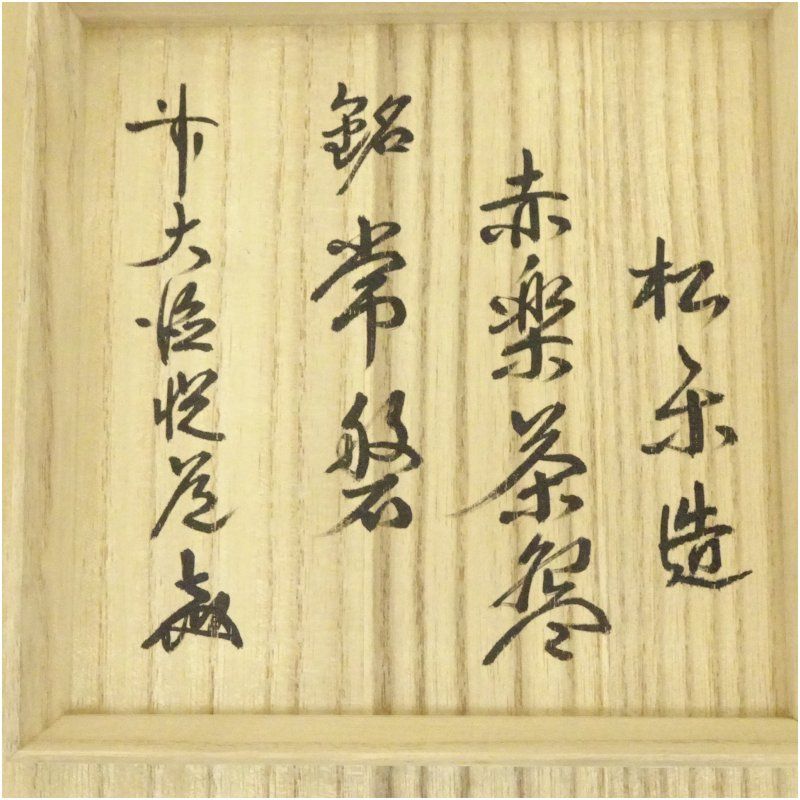 松楽造
赤楽茶盌
銘 常磐
前大徳悦道